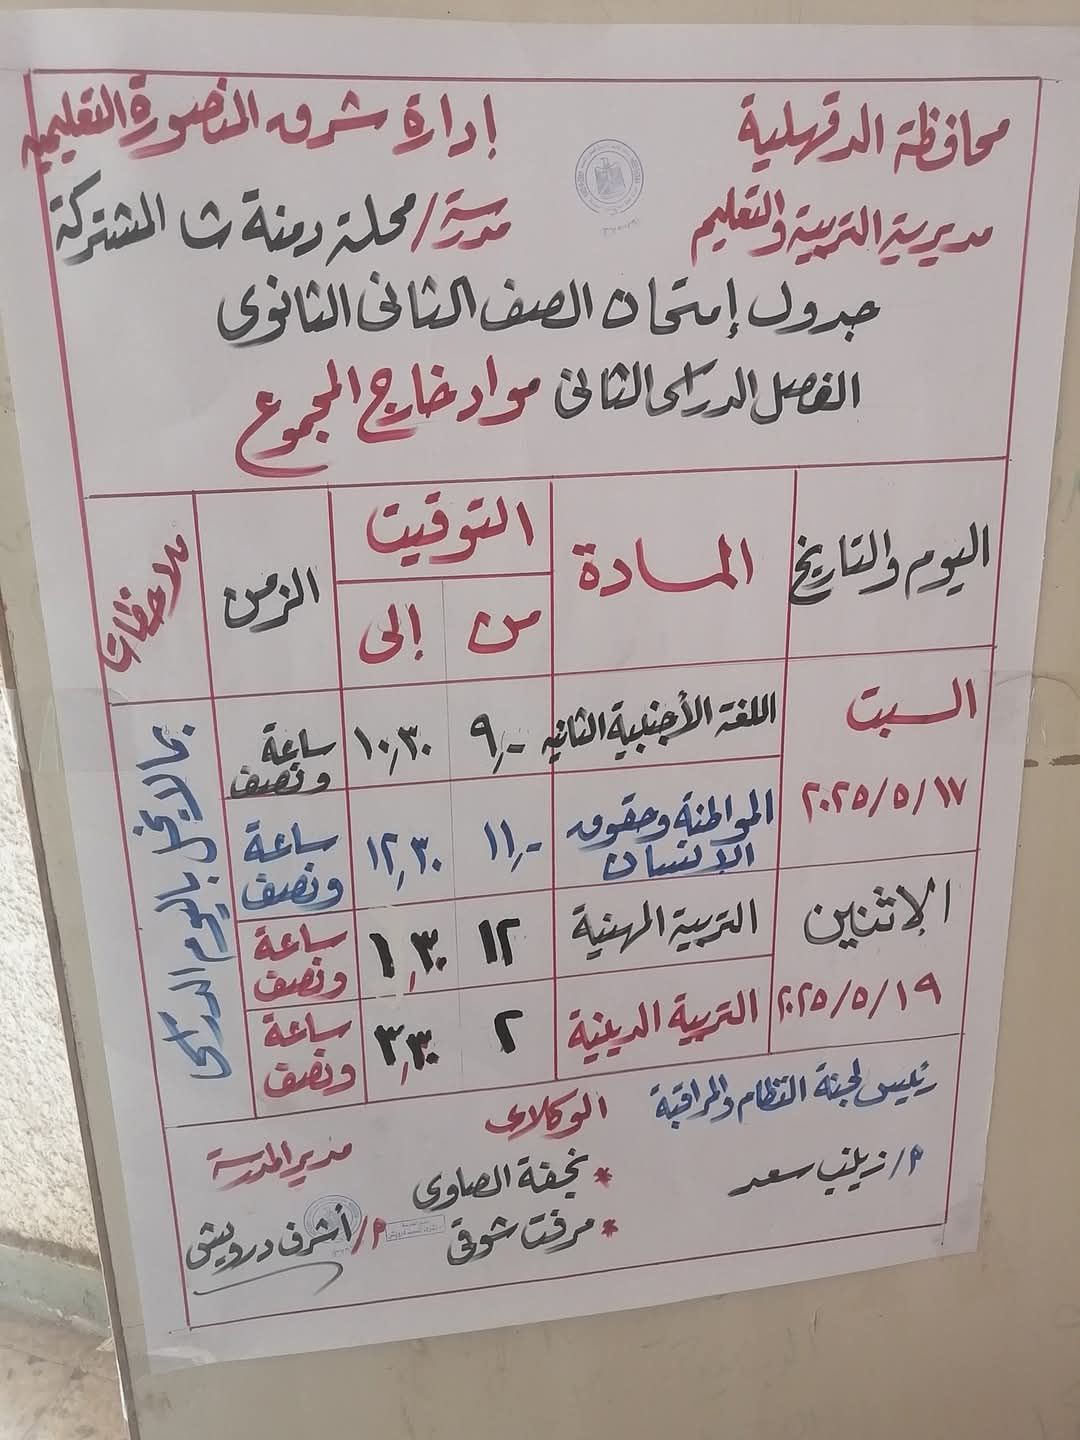 محافظة الدقهلية
إدارة شرق المنصورة التعليمية
مديرية التربية والتعليم
مدرسة / محلة دمنة ث المشتركة
جدول إمتحان الصف الثانى الثانوى
الفصل الدراسى الثانى مواد خارج المجموع
اليوم والتاريخ المادة التوقيت الزمن ملاحظات
من إلى
السبت ١٧/٥/٢٠٢٥
اللغة الأجنبية الثانيه ٩,- ١٠,٣٠ ساعة ونصف
المواطنة وحقوق الإنسان ١١,- ١٢,٣٠ ساعة ونصف
الاثنين ١٩/٥/٢٠٢٥
التربية المهنية ١٢ ١,٣٠ ساعة ونصف
التربية الدينية ٢ ٣,٣٠ ساعة ونصف
بما لا يخل باليوم الدراسى
رئيس لجنة النظام والمراقبة
م/ زينب سعد
الوكلاء
* نجفة الصاوى
* مرفت شوقى
مدير المدرسة
م/ أشرف درويش